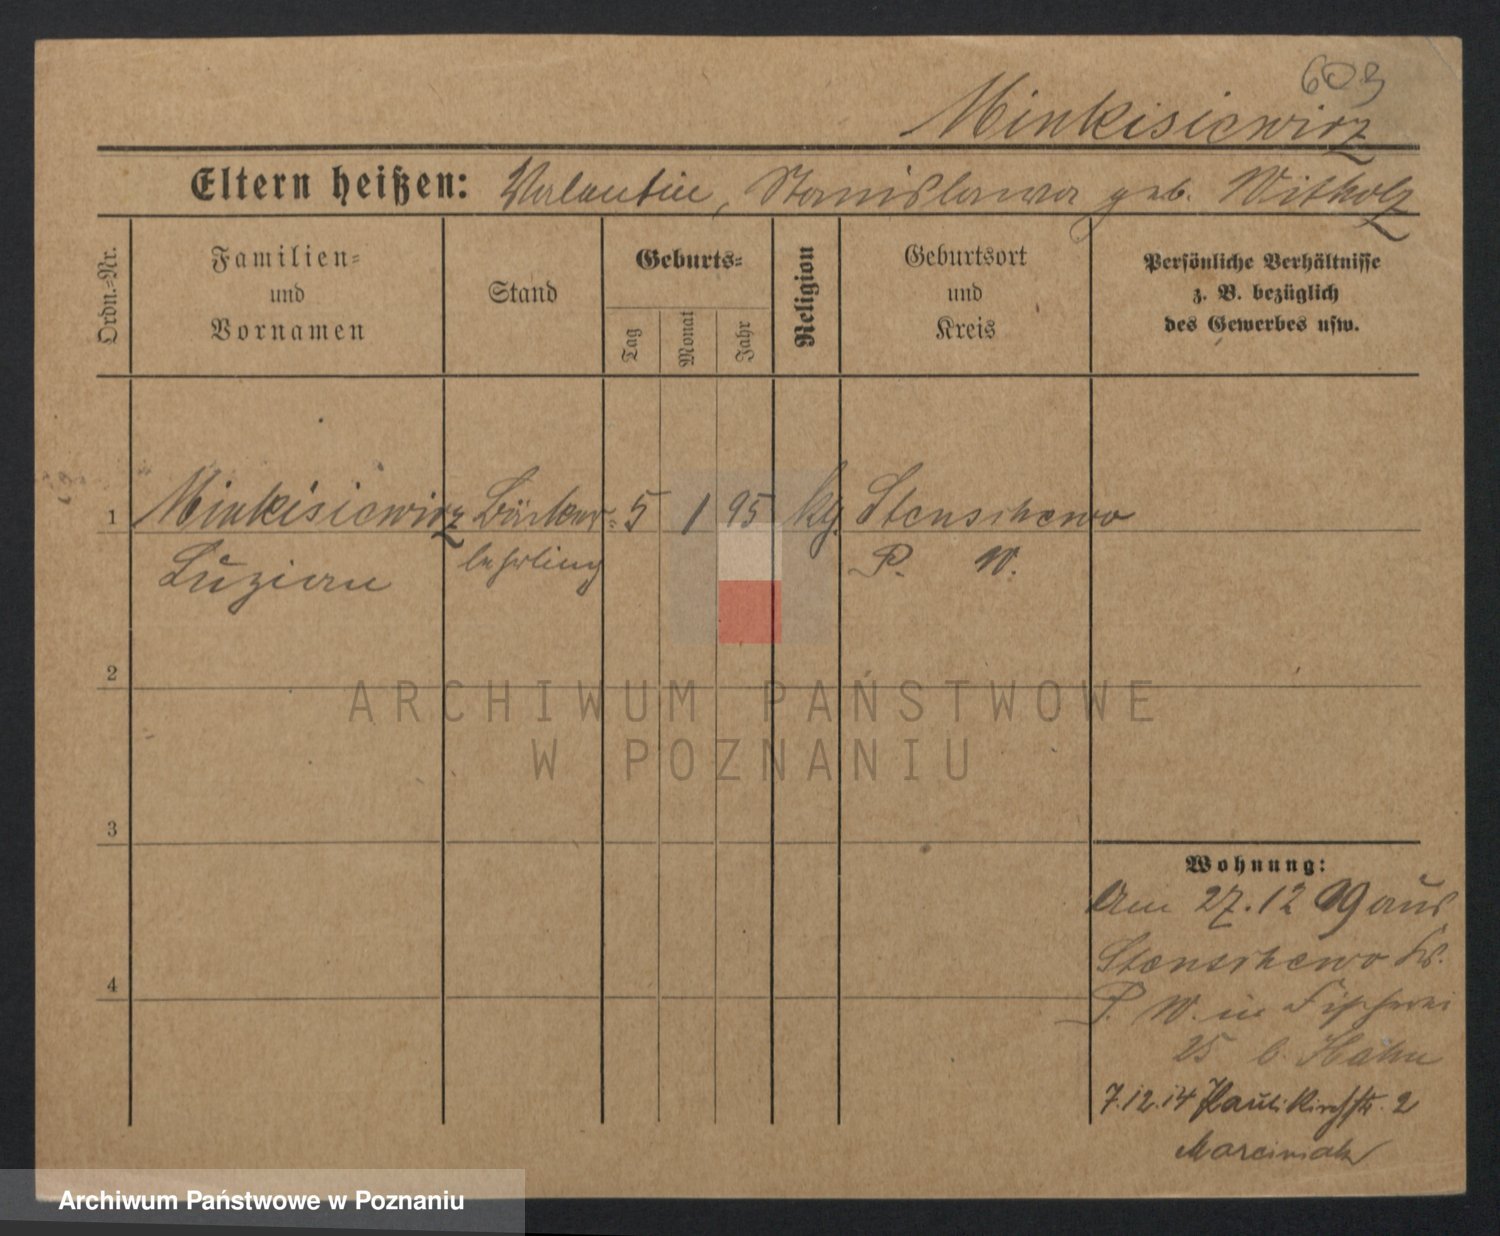 603
Minkisiewicz
Eltern heißen: Valentin, Stanislawa geb. Witholz
Ordn.-Nr.
Familien-
und
Vornamen
Stand
Geburts-
Tag
Monat
Jahr
Religion
Geburtsort
und
Kreis
Persönliche Verhältnisse
z. B. bezüglich
des Gewerbes usw.
1 Minkisiewicz Bäcker- 5 1 95 kg. Stenschewo
Luzian lehrling P. W.
2
3
4
Wohnung:
Am 27.12 09 aus
Stenschewo Kr.
P. W. in Fischerei
25 b. Hahn
7.12.14 Paulikirchstr. 2
Marciniak
ARCHIWUM PAŃSTWOWE
W POZNANIU
Archiwum Państwowe w Poznaniu